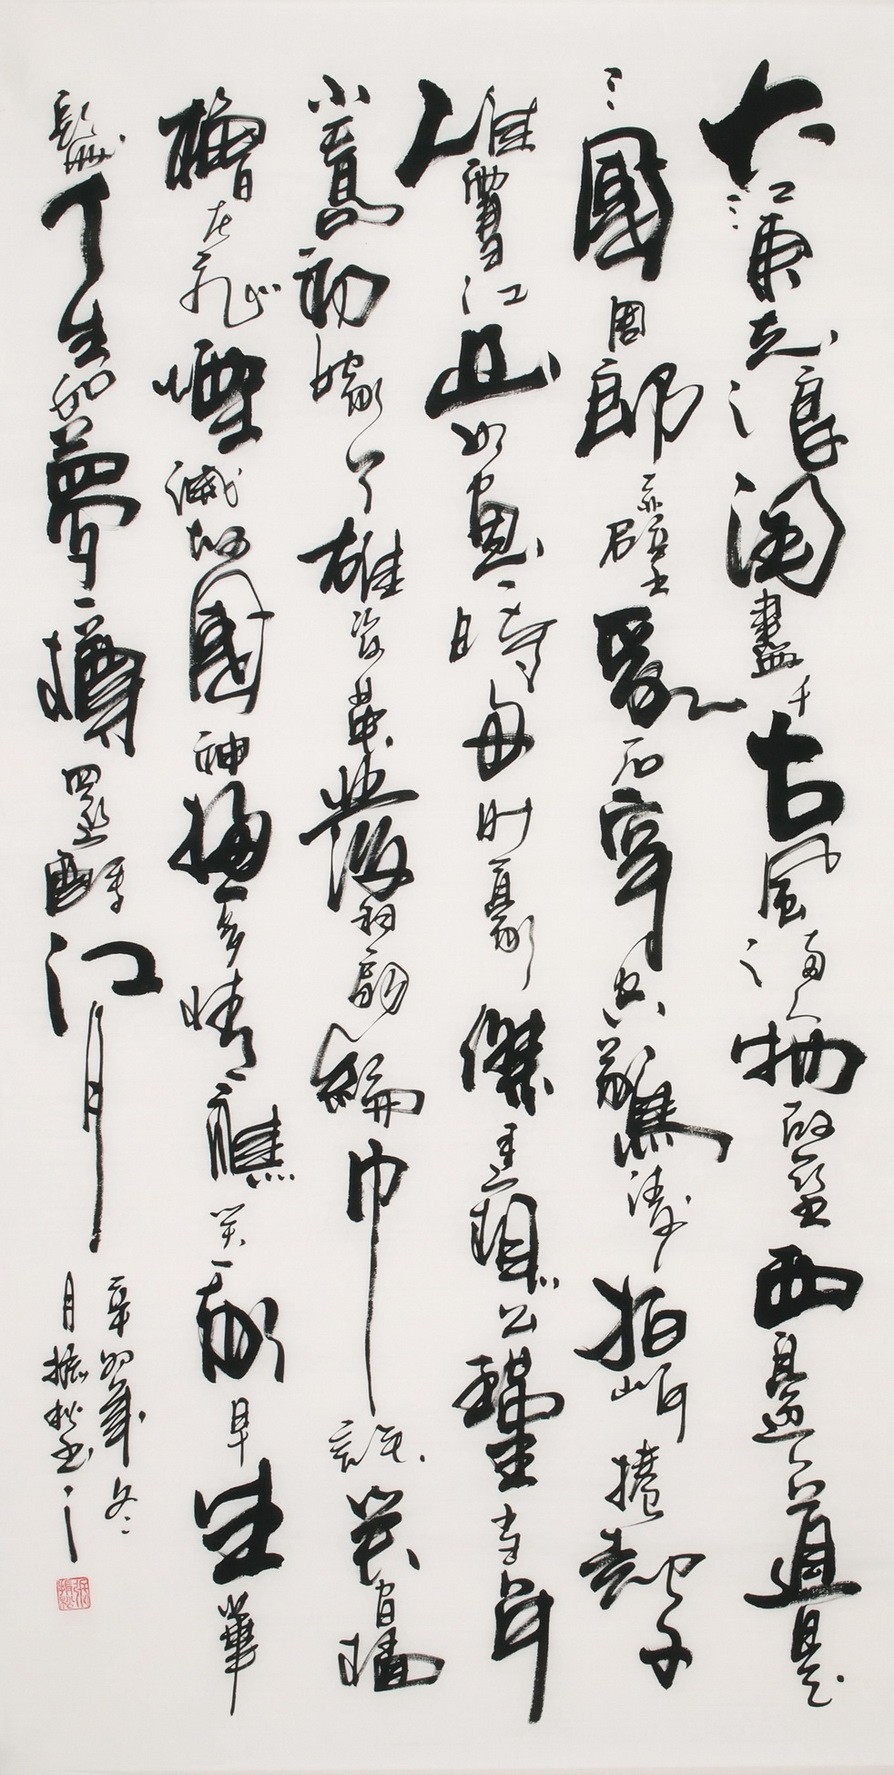 大江東去浪淘盡千古風流人物故壘西邊人道是
三國周郎赤壁亂石穿空驚濤拍岸捲起千
堆雪江山如畫一時多少豪傑遙想公瑾當年
小喬初嫁了雄姿英發羽扇綸巾談笑間檣
櫓灰飛煙滅故國神遊多情應笑我早生華
髮人生如夢一樽還酹江月
辛卯歲冬
月振松書